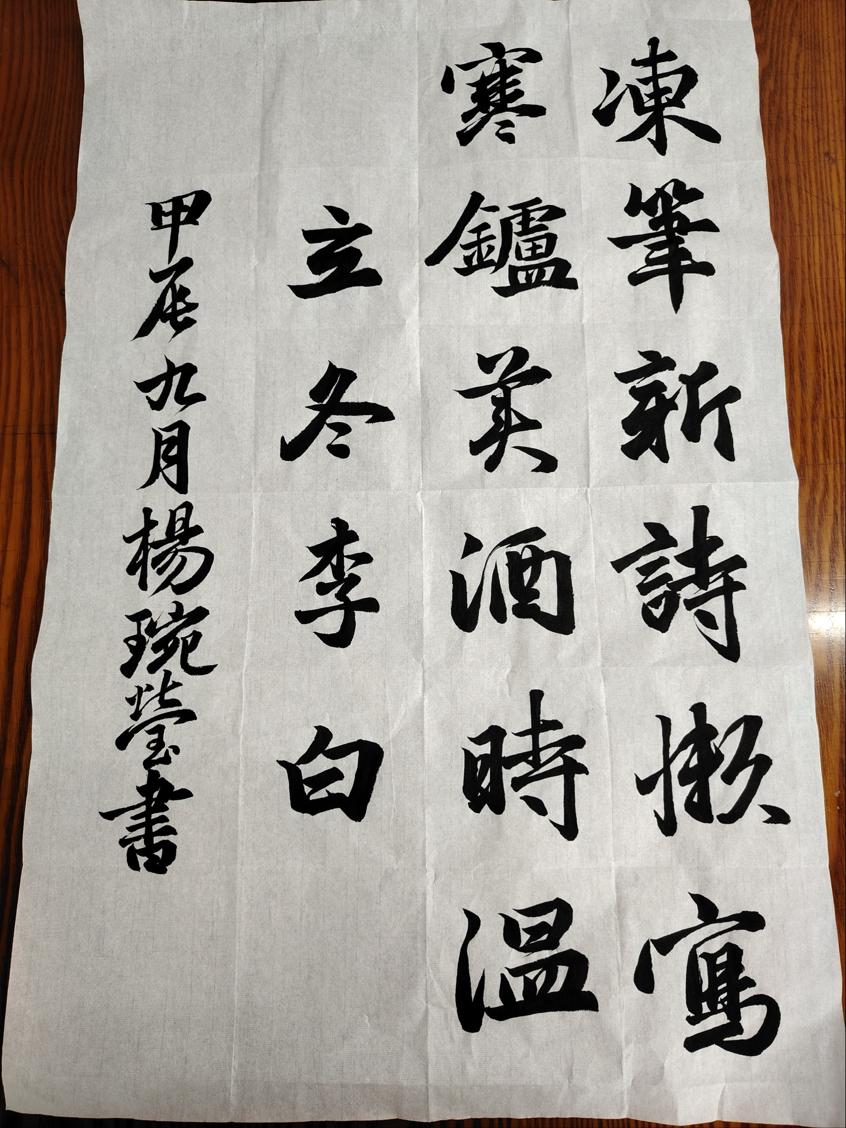 凍筆新詩懶寫
寒鑪美酒時溫
立冬李白
甲辰九月楊琬瑩書